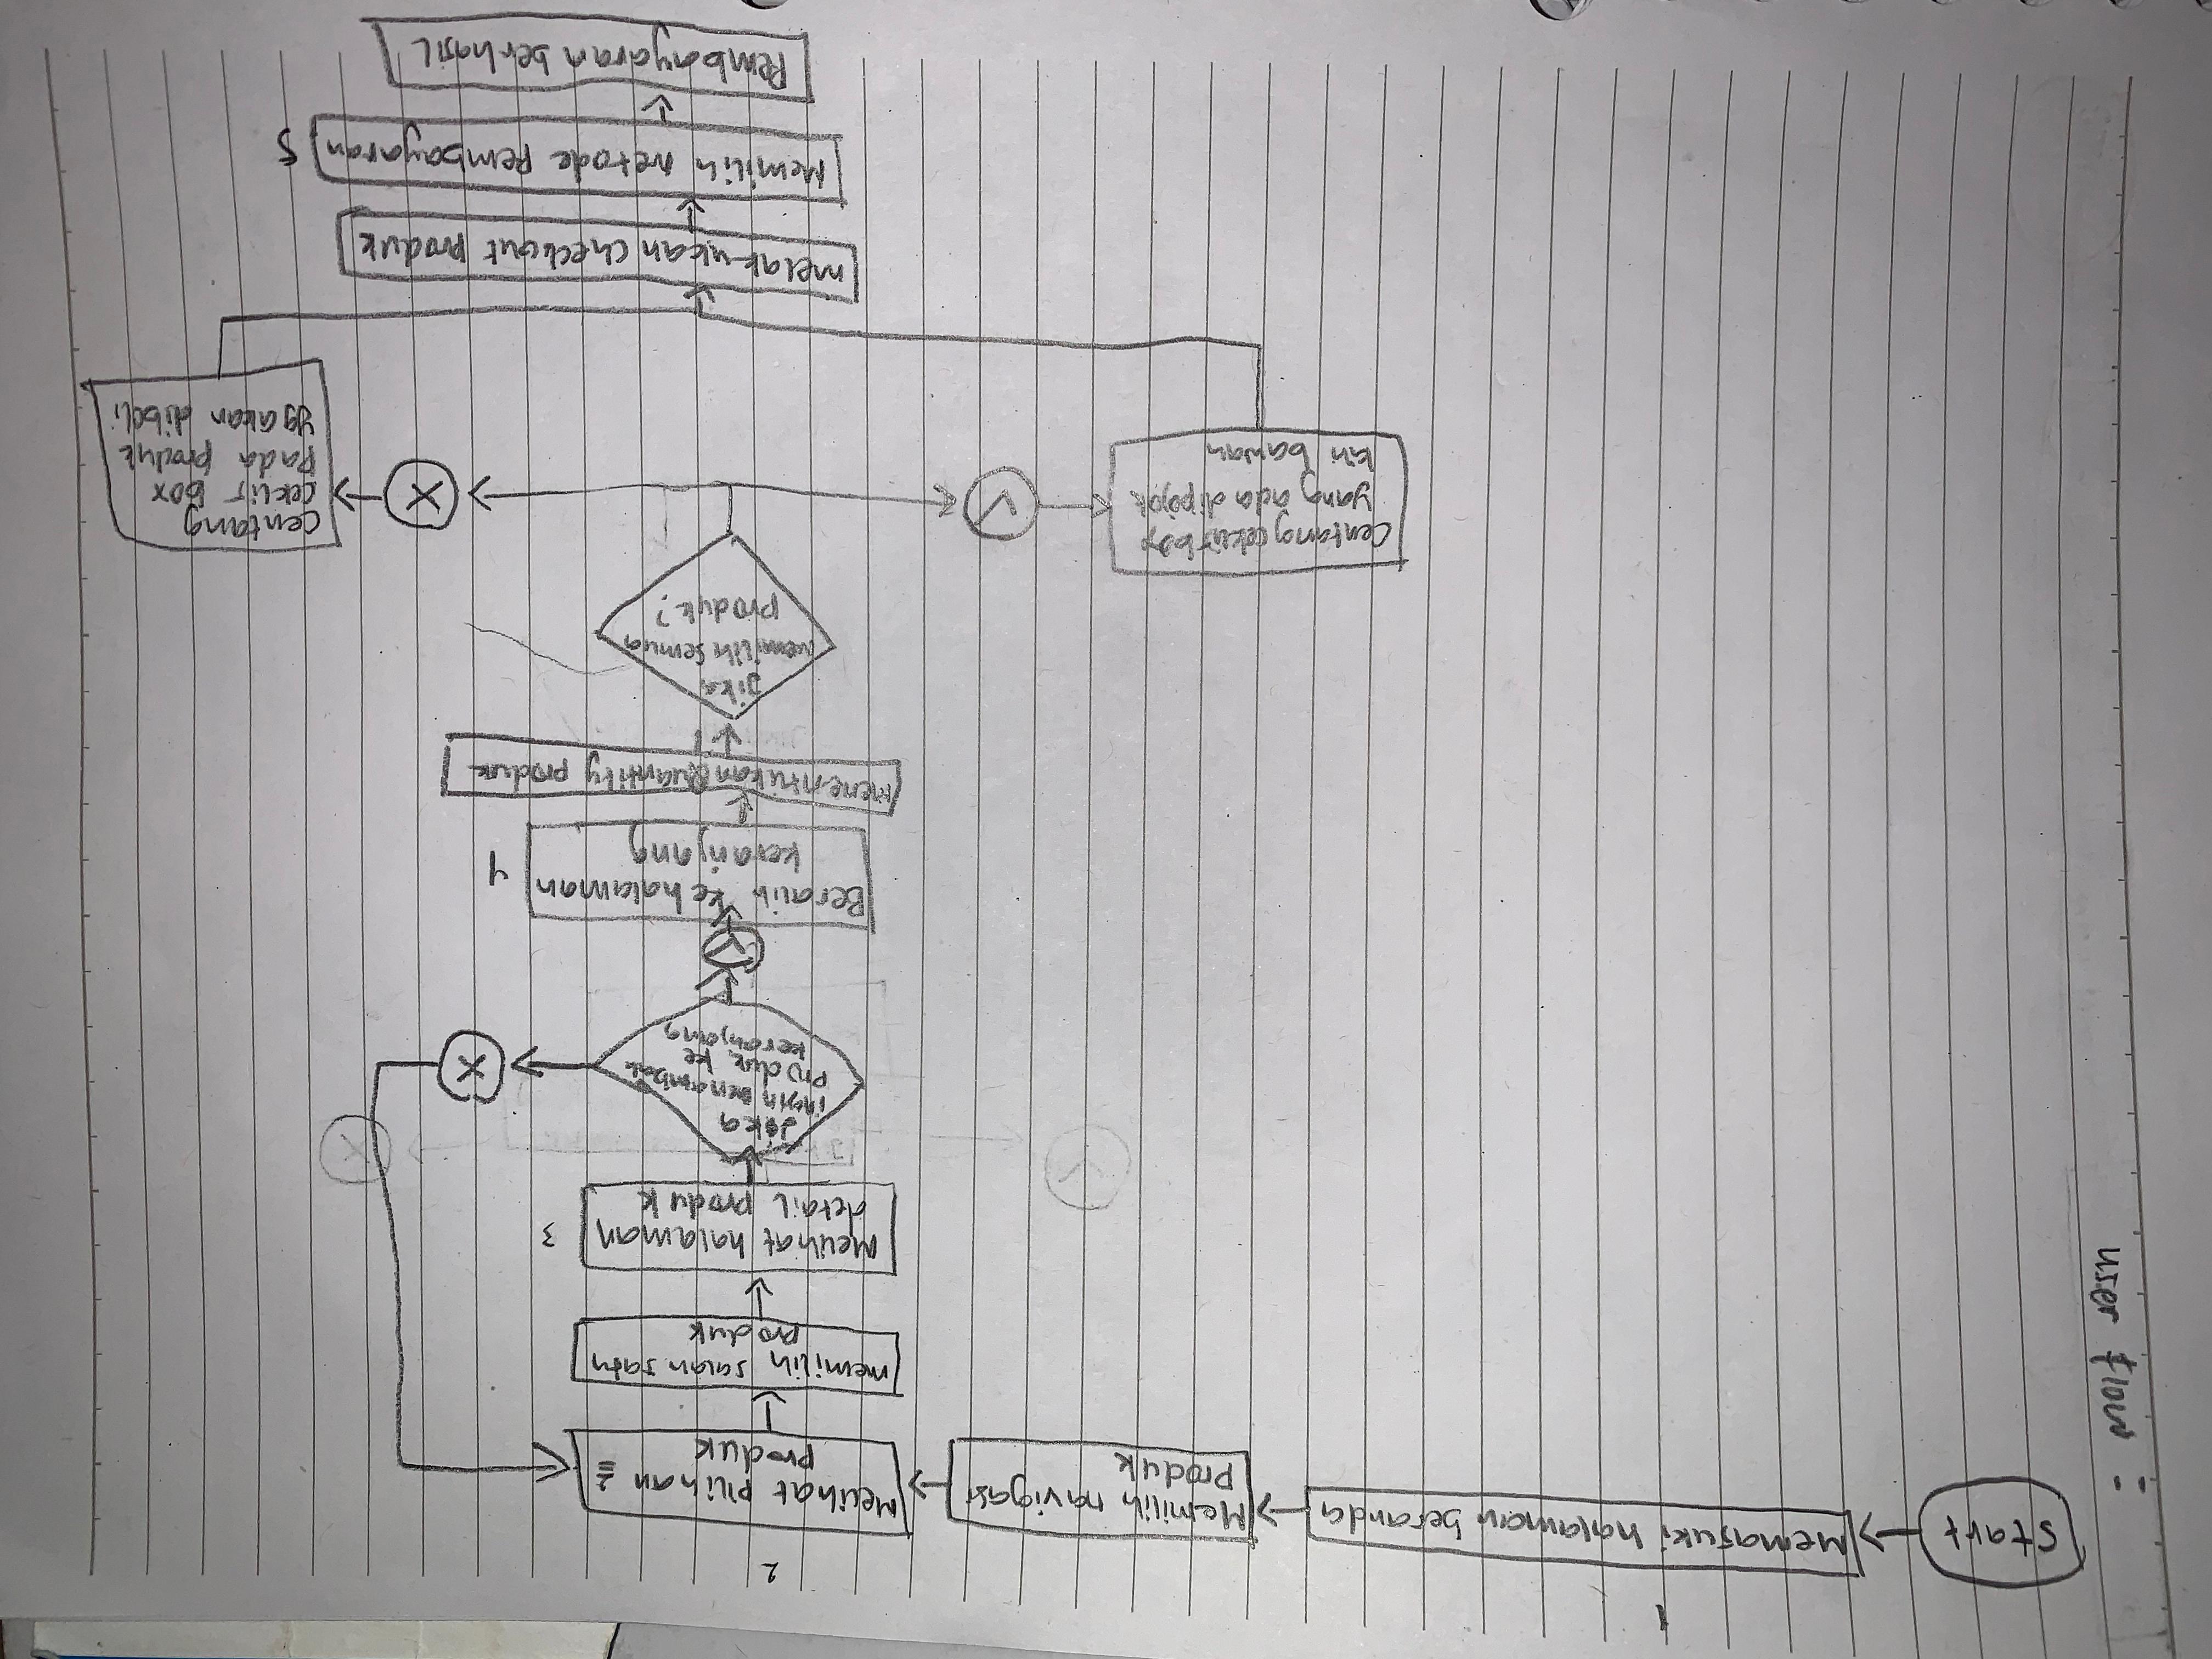 user flow =
Start
1
Memasuki halaman beranda
Memilih navigasi
Produk
2
Melihat pilihan
Produk
memilih salah satu
Produk
3
Melihat halaman
detail produk
Jika
ingin menambah
Produk ke
keranjang
X
Beralih ke halaman
keranjang
4
Menentukan quantity produk
Jika
memilih semua
produk?
X
Centang
ceklit box
Pada produk
yg akan dibeli
Centang ceklit box
yang ada dipojok
kiri bawah
melakukan checkout produk
Memilih metode pembayaran
5
Pembayaran berhasil